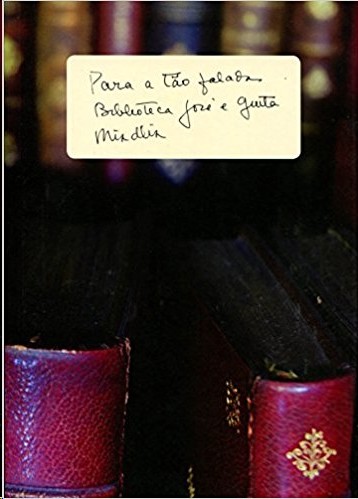 Para a tão falada
Biblioteca José e Guita
Mindlin